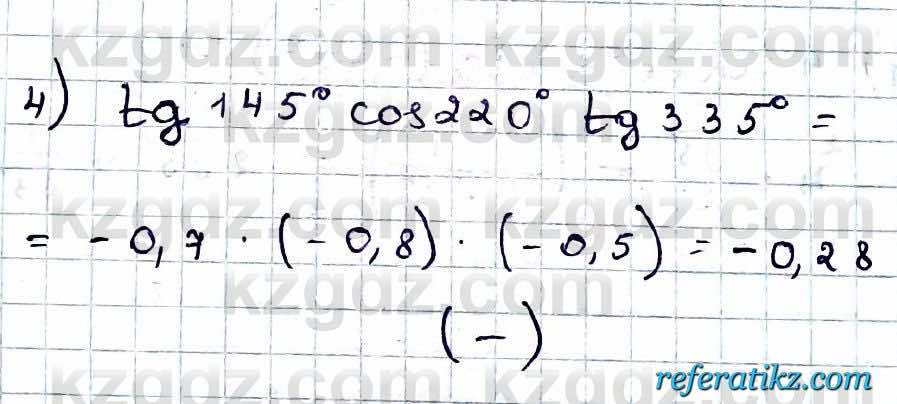 kzgdz.com kzgdz.com
4) tg 145° cos 220° tg 335° =
kzgdz.com
kzgdz.com kzgdz.com
= - 0,7 · (- 0,8) · (- 0,5) = - 0,28
kzgdz.com
(-)
kzgdz.com
referatikz.com